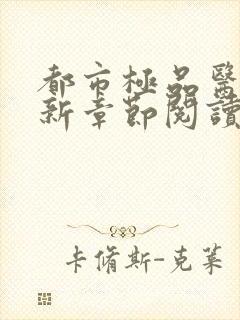 都市極品醫
新章節閱讀
卡脩斯-克萊